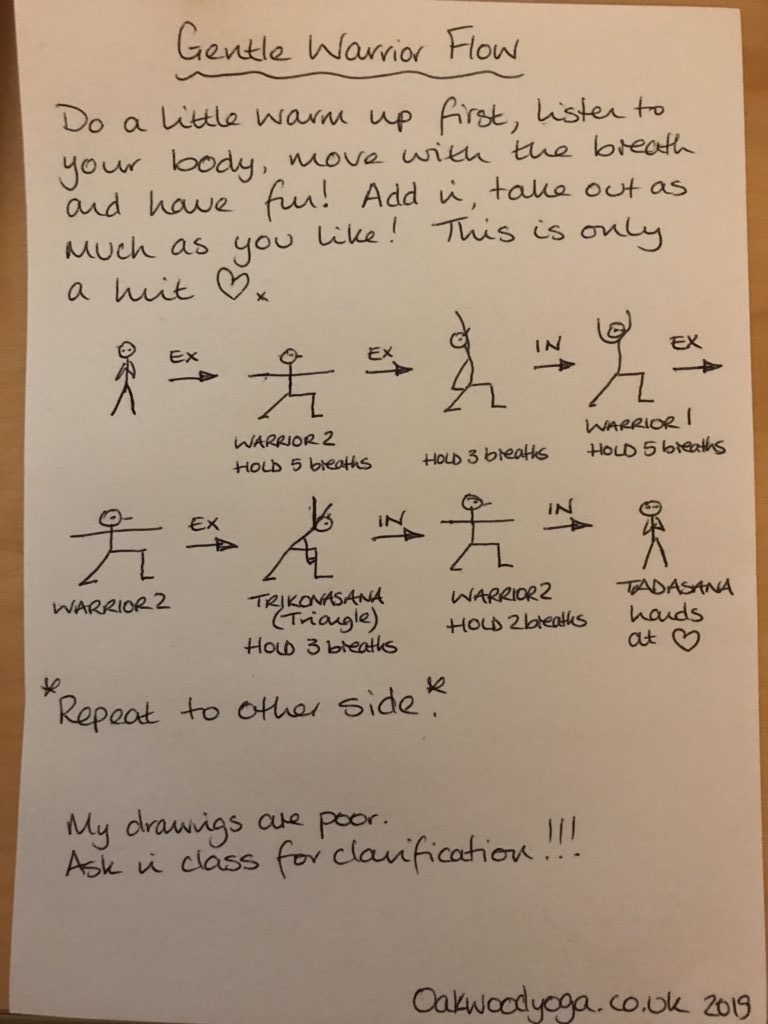 Gentle Warrior Flow
Do a little warm up first, listen to
your body, move with the breath
and have fun! Add in, take out as
much as you like! This is only
a hint ♡x
EX EX IN EX
WARRIOR 2
HOLD 5 breaths
HOLD 3 breaths
WARRIOR 1
HOLD 5 breaths
EX IN IN
WARRIOR 2
TRIKONASANA
(Triangle)
HOLD 3 breaths
WARRIOR 2
HOLD 2 breaths
TADASANA
hands
at ♡
*Repeat to other side*.
My drawings are poor.
Ask in class for clarification!!!
Oakwoodyoga.co.uk 2019